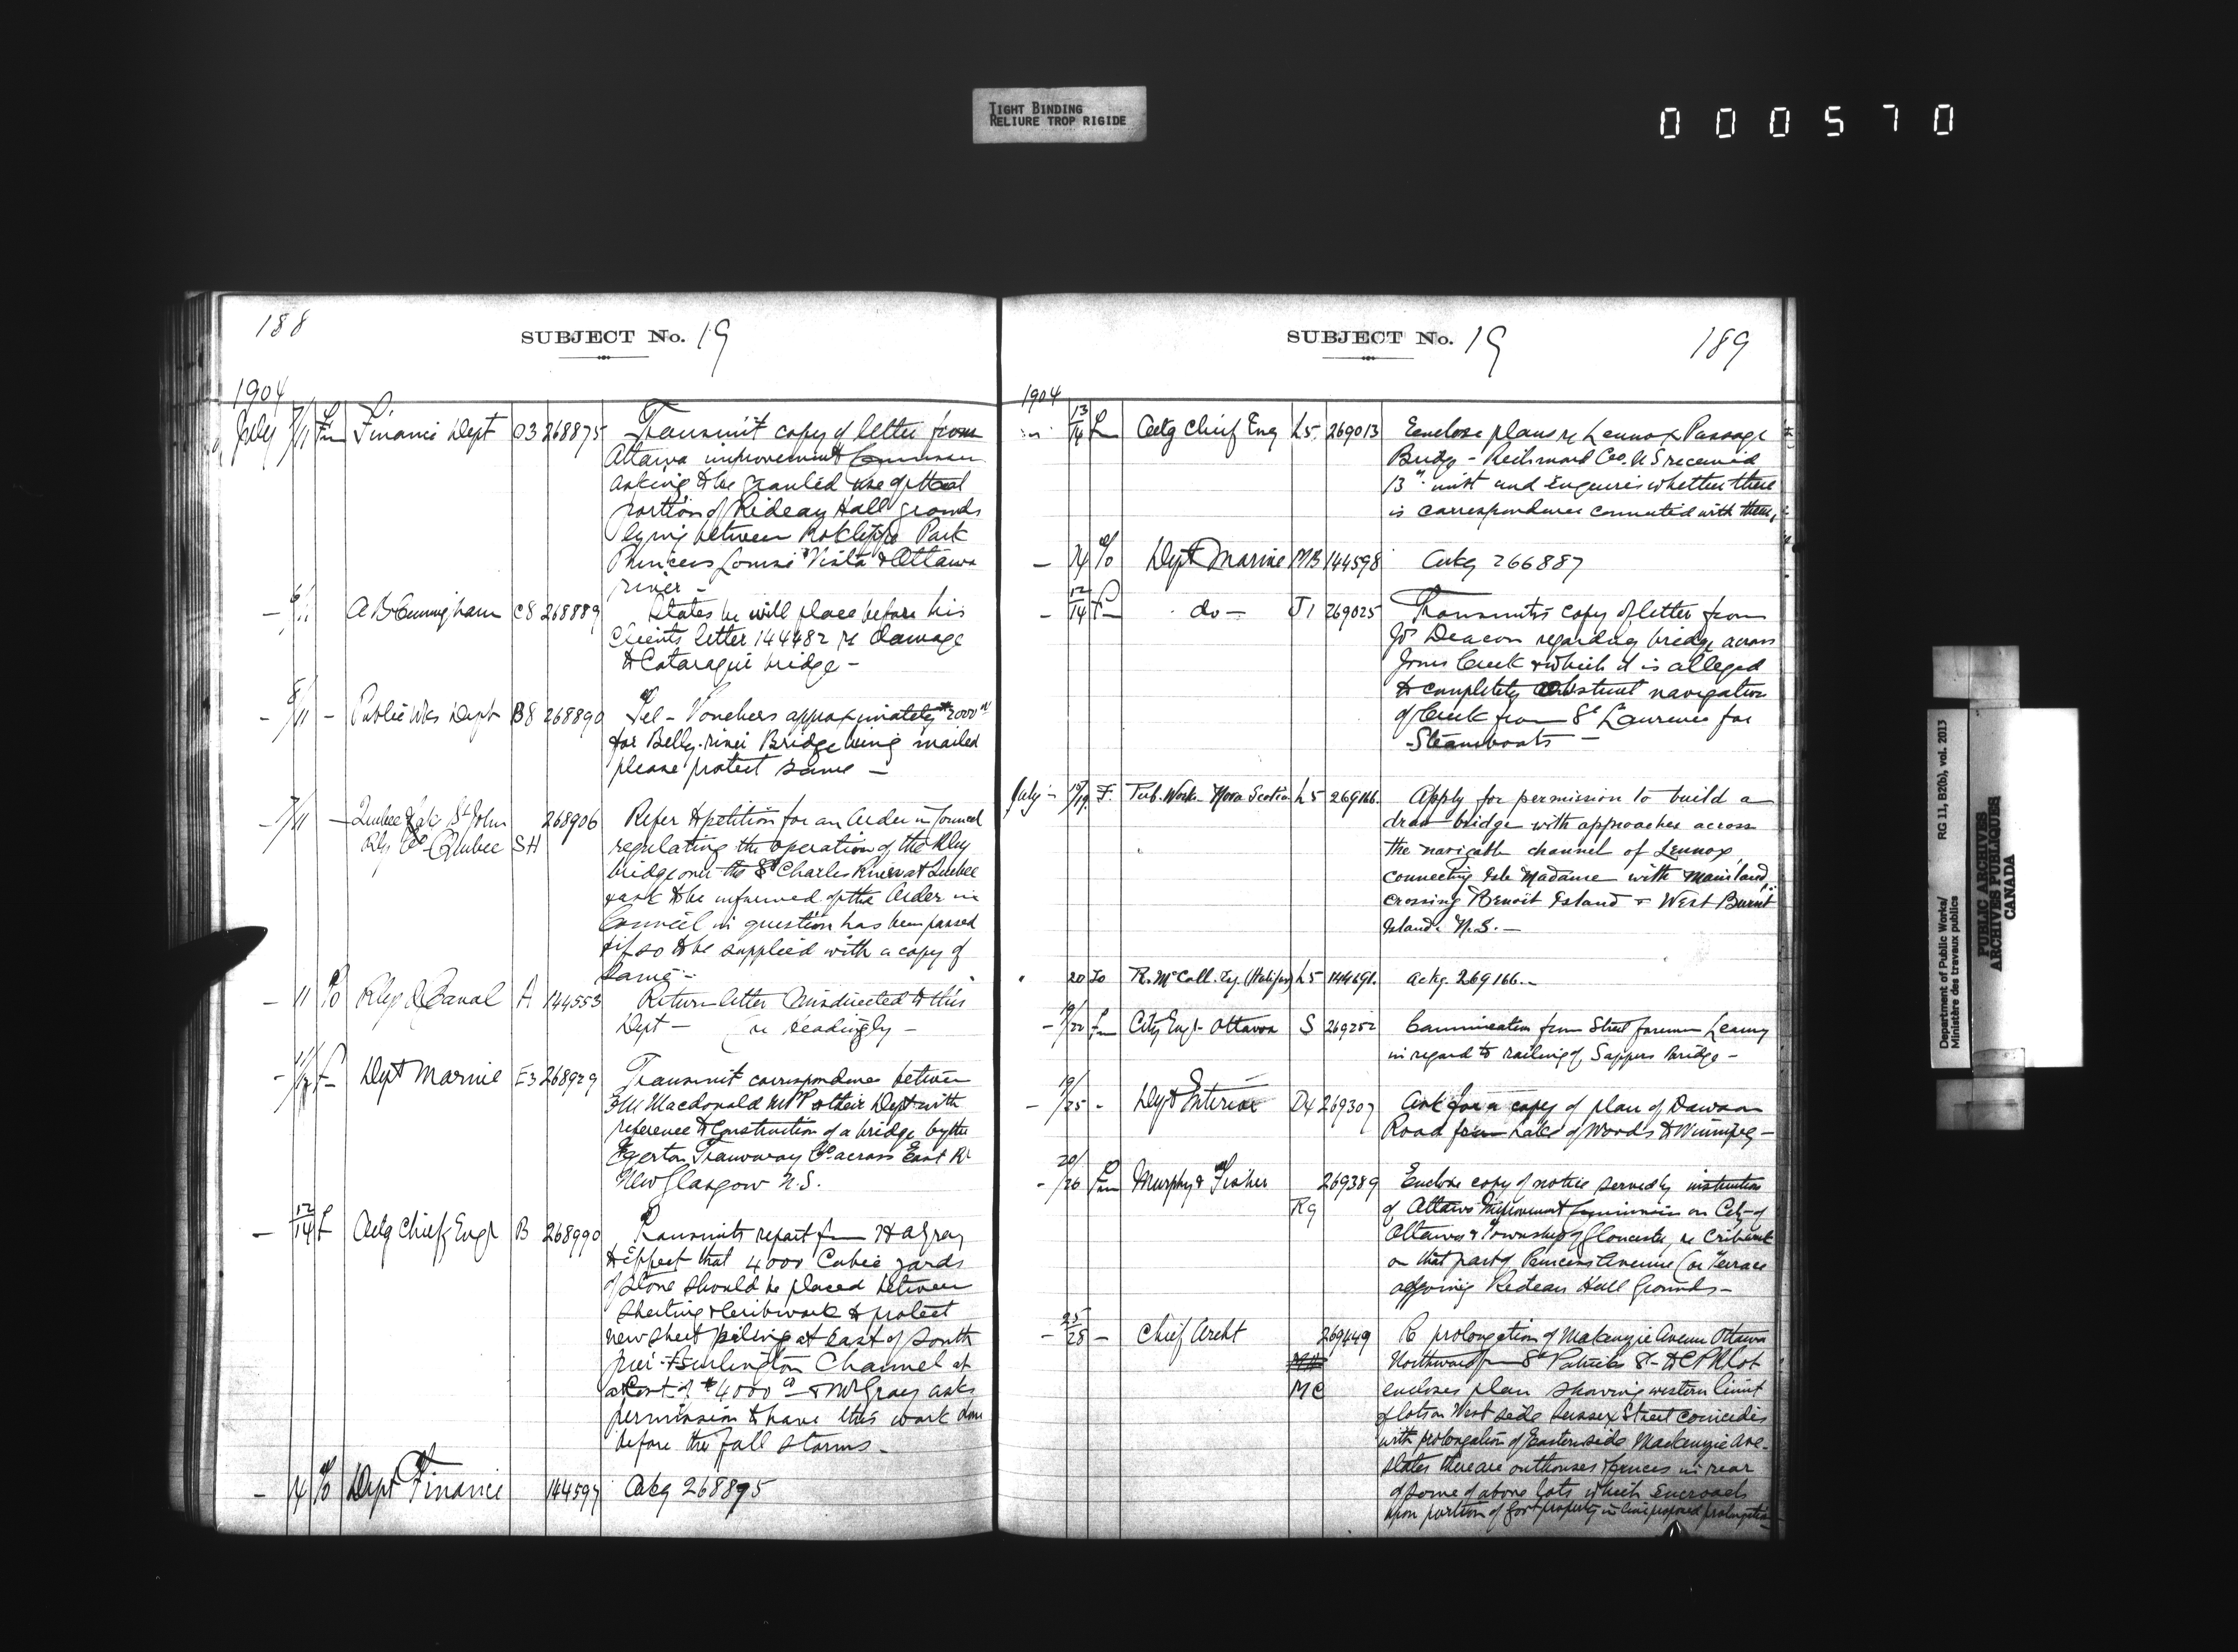 TIGHT BINDING
RELIURE TROP RIGIDE
000570
188
SUBJECT No. 19
1904
July 7/11 Fm Finance Dept 03 268875 Transmit copy of letter from
Ottawa improvement Commission
asking to be granted use of that
portion of Rideau Hall grounds
lying between Rokcliffe Park
Princess Louise Vista & Ottawa
river -
- A B Cunningham C8 268889 States he will place before his
Clients letter 144482 re damage
to Cataraqui bridge -
- 8/11 - Public Wks Dept B8 268890 Tel - Vouchers approximately $2000
for Belly river Bridge being mailed
please protect same -
- 7/11 - Quebec & Lake St John 268906 Refer to petition for an Order in Council
Rly Co Quebec SH regulating the operation of the Rly
bridge over the St Charles River at Quebec
& ask to be informed if the Order in
Council in question has been passed
& if so to be supplied with a copy of
same -
- 11 To Rlys & Canal A 144553 Return letter misdirected to this
Dept - re Headingly -
- Fm Dept Marine E3 268929 Transmit correspondence between
E M Macdonald MPP & their Dept with
reference to Construction of a bridge by the
Egerton Tramway Co. across East Rr
New Glasgow N.S.
- 12/14 F Actg Chief Engr B 268990 Transmits report fm H A Gray
to Effect that 4000 Cubic yards
of stone should be placed between
sheeting & cribwork to protect
new sheet piling at East of South
pier - Burlington Channel at
a Cost of $4000 & Mr Gray asks
permission to have this work done
before the fall storms -
- 14 To Dept Finance 144597 Ackg 268895
SUBJECT No. 19
189
1904
13/14 Fm Actg Chief Eng L5 269013 Enclose plans re Lennox Passage
Bridge - Richmond Co. N S received
13" inst and Enquires whether there
is correspondence connected with them,
- 14 To Dept Marine MB 144598 Ackg 266887
- 12/14 Fm do - J1 269025 Transmits copy of letter from
Jos Deacon regarding bridge across
Jones Creek & which it is alleged
to completely obstruct navigation
of Creek from St Laurence for
Steamboats -
July 15/19 F. Pub. Work. Nova Scotia L5 269166. Apply for permission to build a
draw bridge with approaches across
the navigable channel of Lennox,
connecting Isle Madame with Mainland,
crossing Benoit Island & West Burnt
Island. N.S. -
20 To R. McColl. Esq. (Halifax) L5 144691. ackg. 269166. -
- 19/22 Fm City Engr Ottawa S 269252 Communication from Street foreman Leamy
in regard to railing of Sappers bridge -
- 19/25 - Dept Interior D4 269307 Ask for a copy of plan of Dawson
Road from Lake of Woods to Winnipeg -
- 20/26 Fm Murphy & Fisher 269389 Enclose copy of notice served by instruction
R9 of Ottawa Improvement Commission on City of
Ottawa & Township of Gloucester, re Cribwork
on that part of Princess Avenue (or Terrace
adjoining Rideau Hall Grounds -
- 25/28 - Chief Archt 269449 Re prolongation of Makenzie Avenue Ottawa
Northward from St Patricks St - to C P R lot
MC encloses plan showing western limit
of lots on West side Sussex Street coincides
with prolongation of Eastern side Mackenzie Ave -
states there are outhouses & fences in rear
of some of above lots which Encroach
upon portion of Govt property in line proposed prolongation
Department of Public Works/ RG 11, B2(b), vol. 2013
Ministère des travaux publics
PUBLIC ARCHIVES
ARCHIVES PUBLIQUES
CANADA